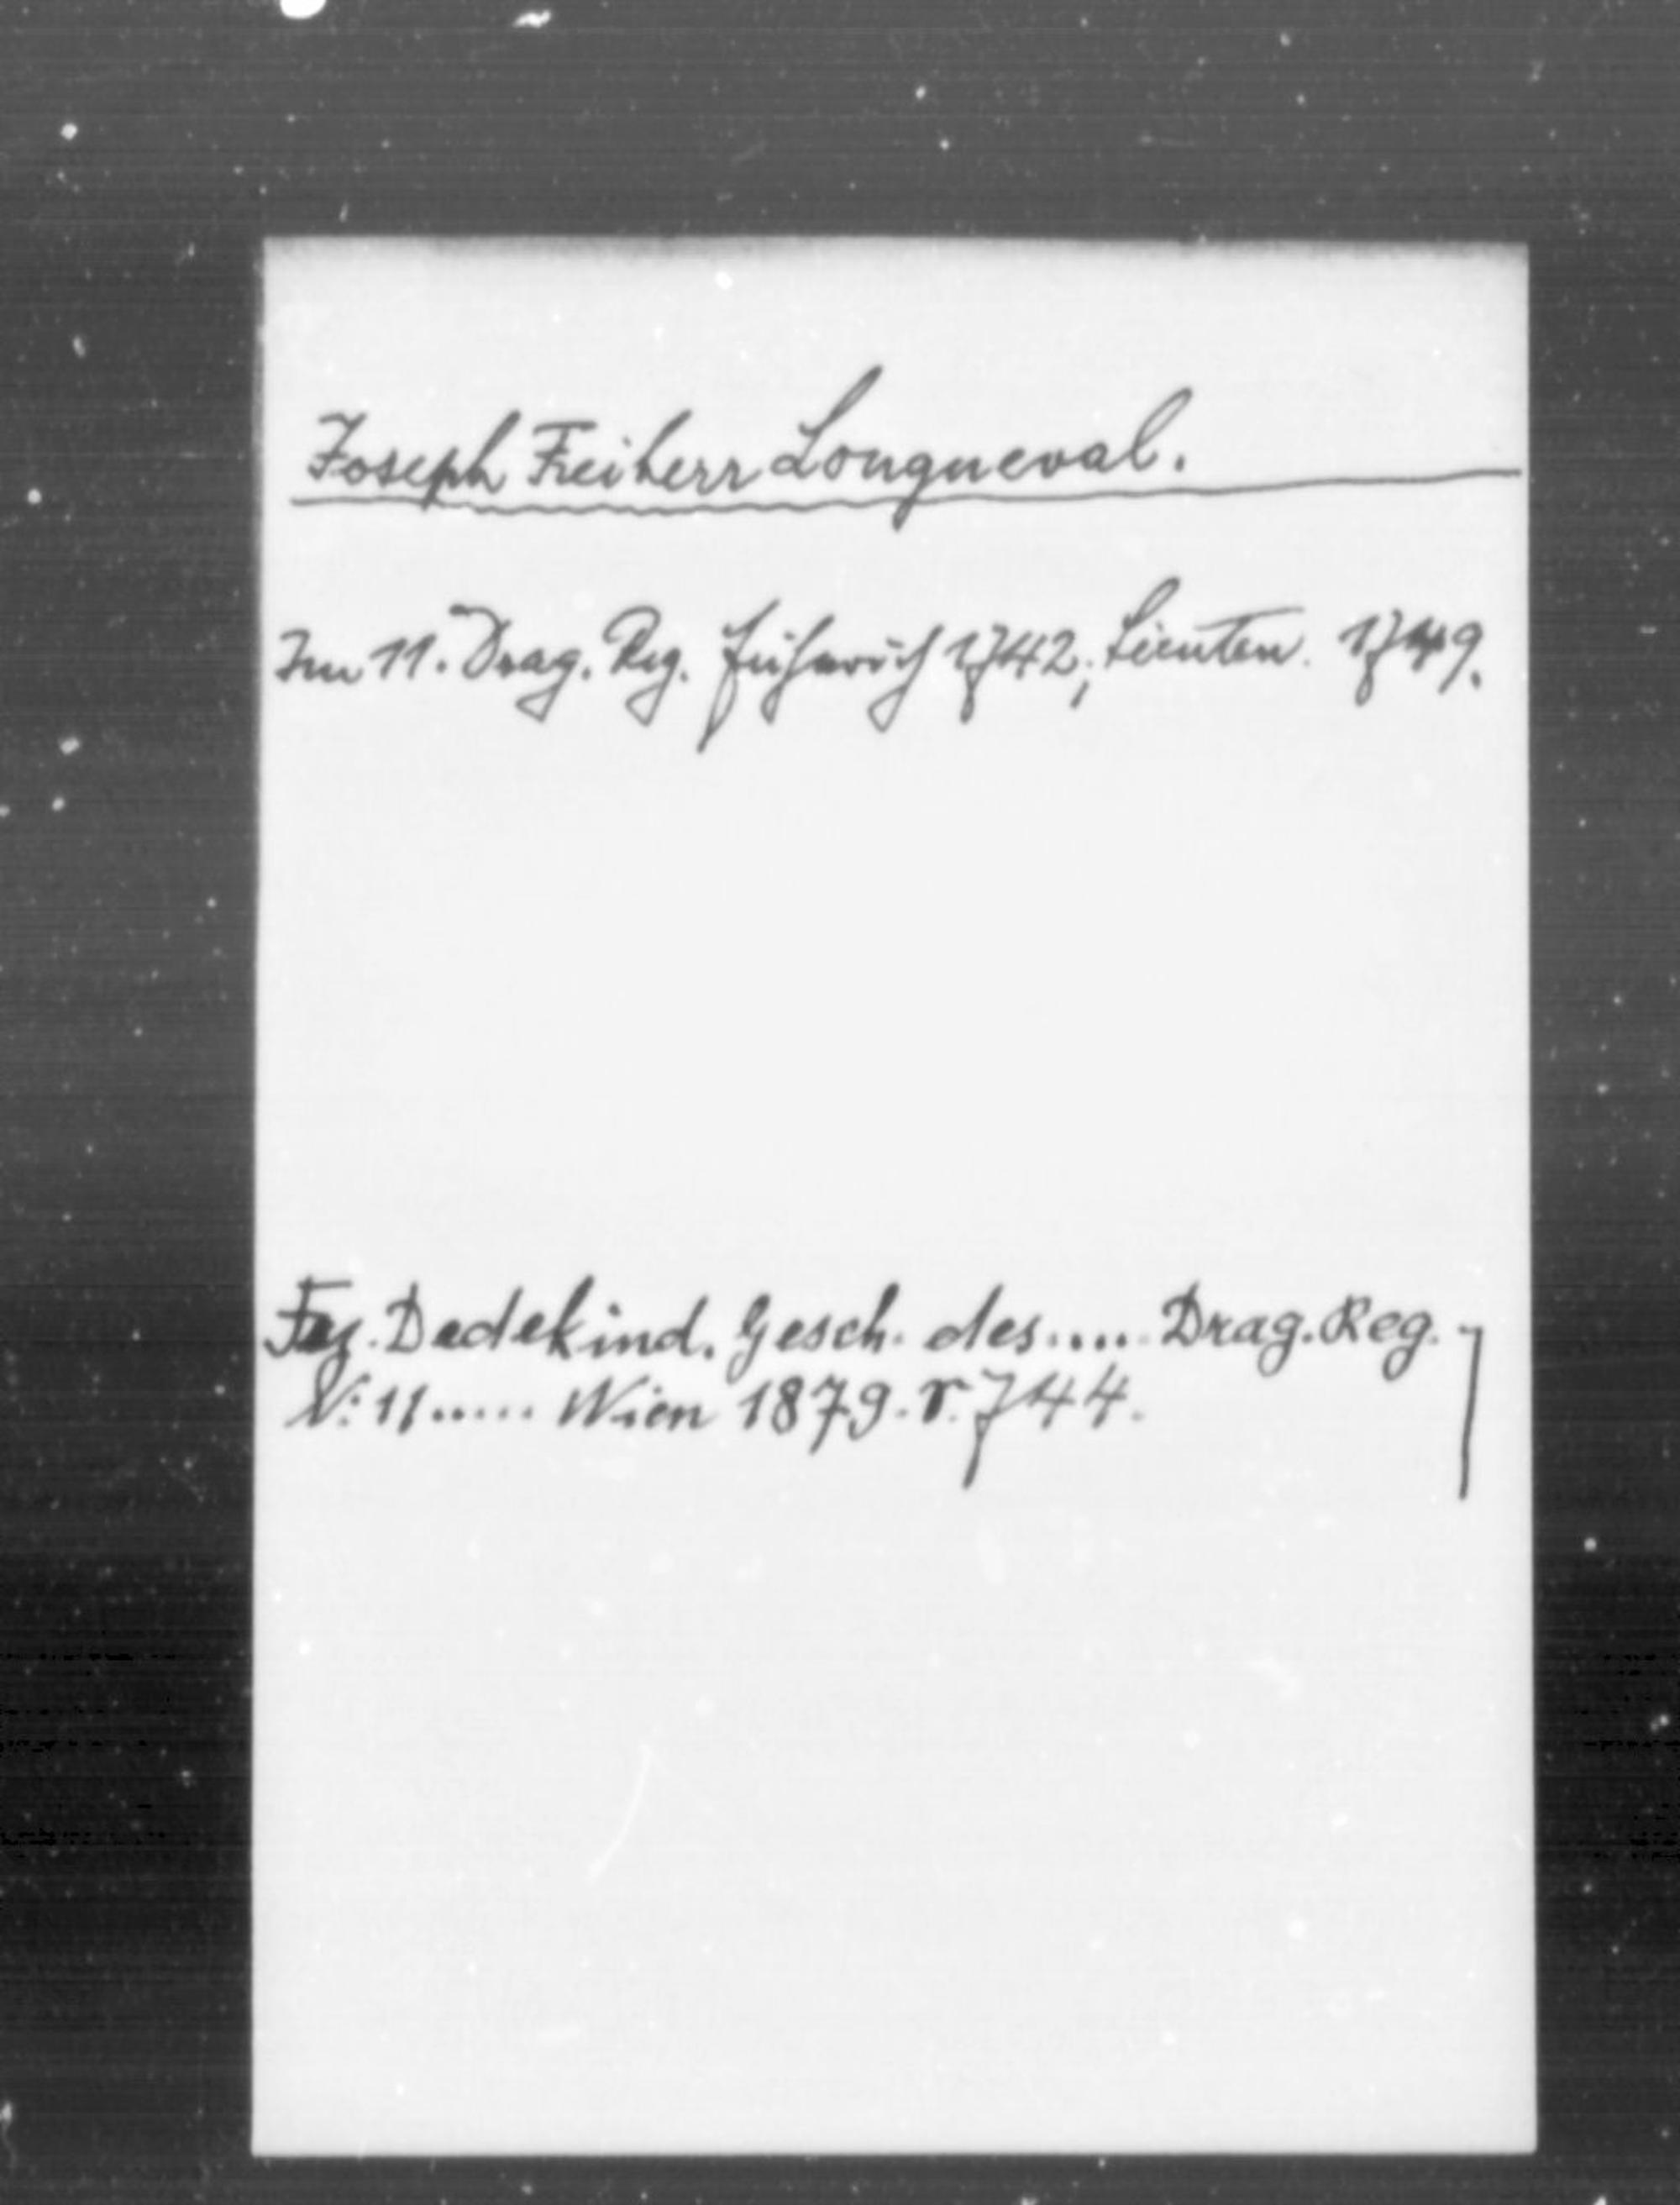 Joseph Freiherr Longueval.
Im 11. Drag. Reg. Fähnrich 1742, Lieuten. 1749.
Frz. Dedekind. Gesch. des.... Drag. Reg.
N: 11..... Wien 1879. S. 744.